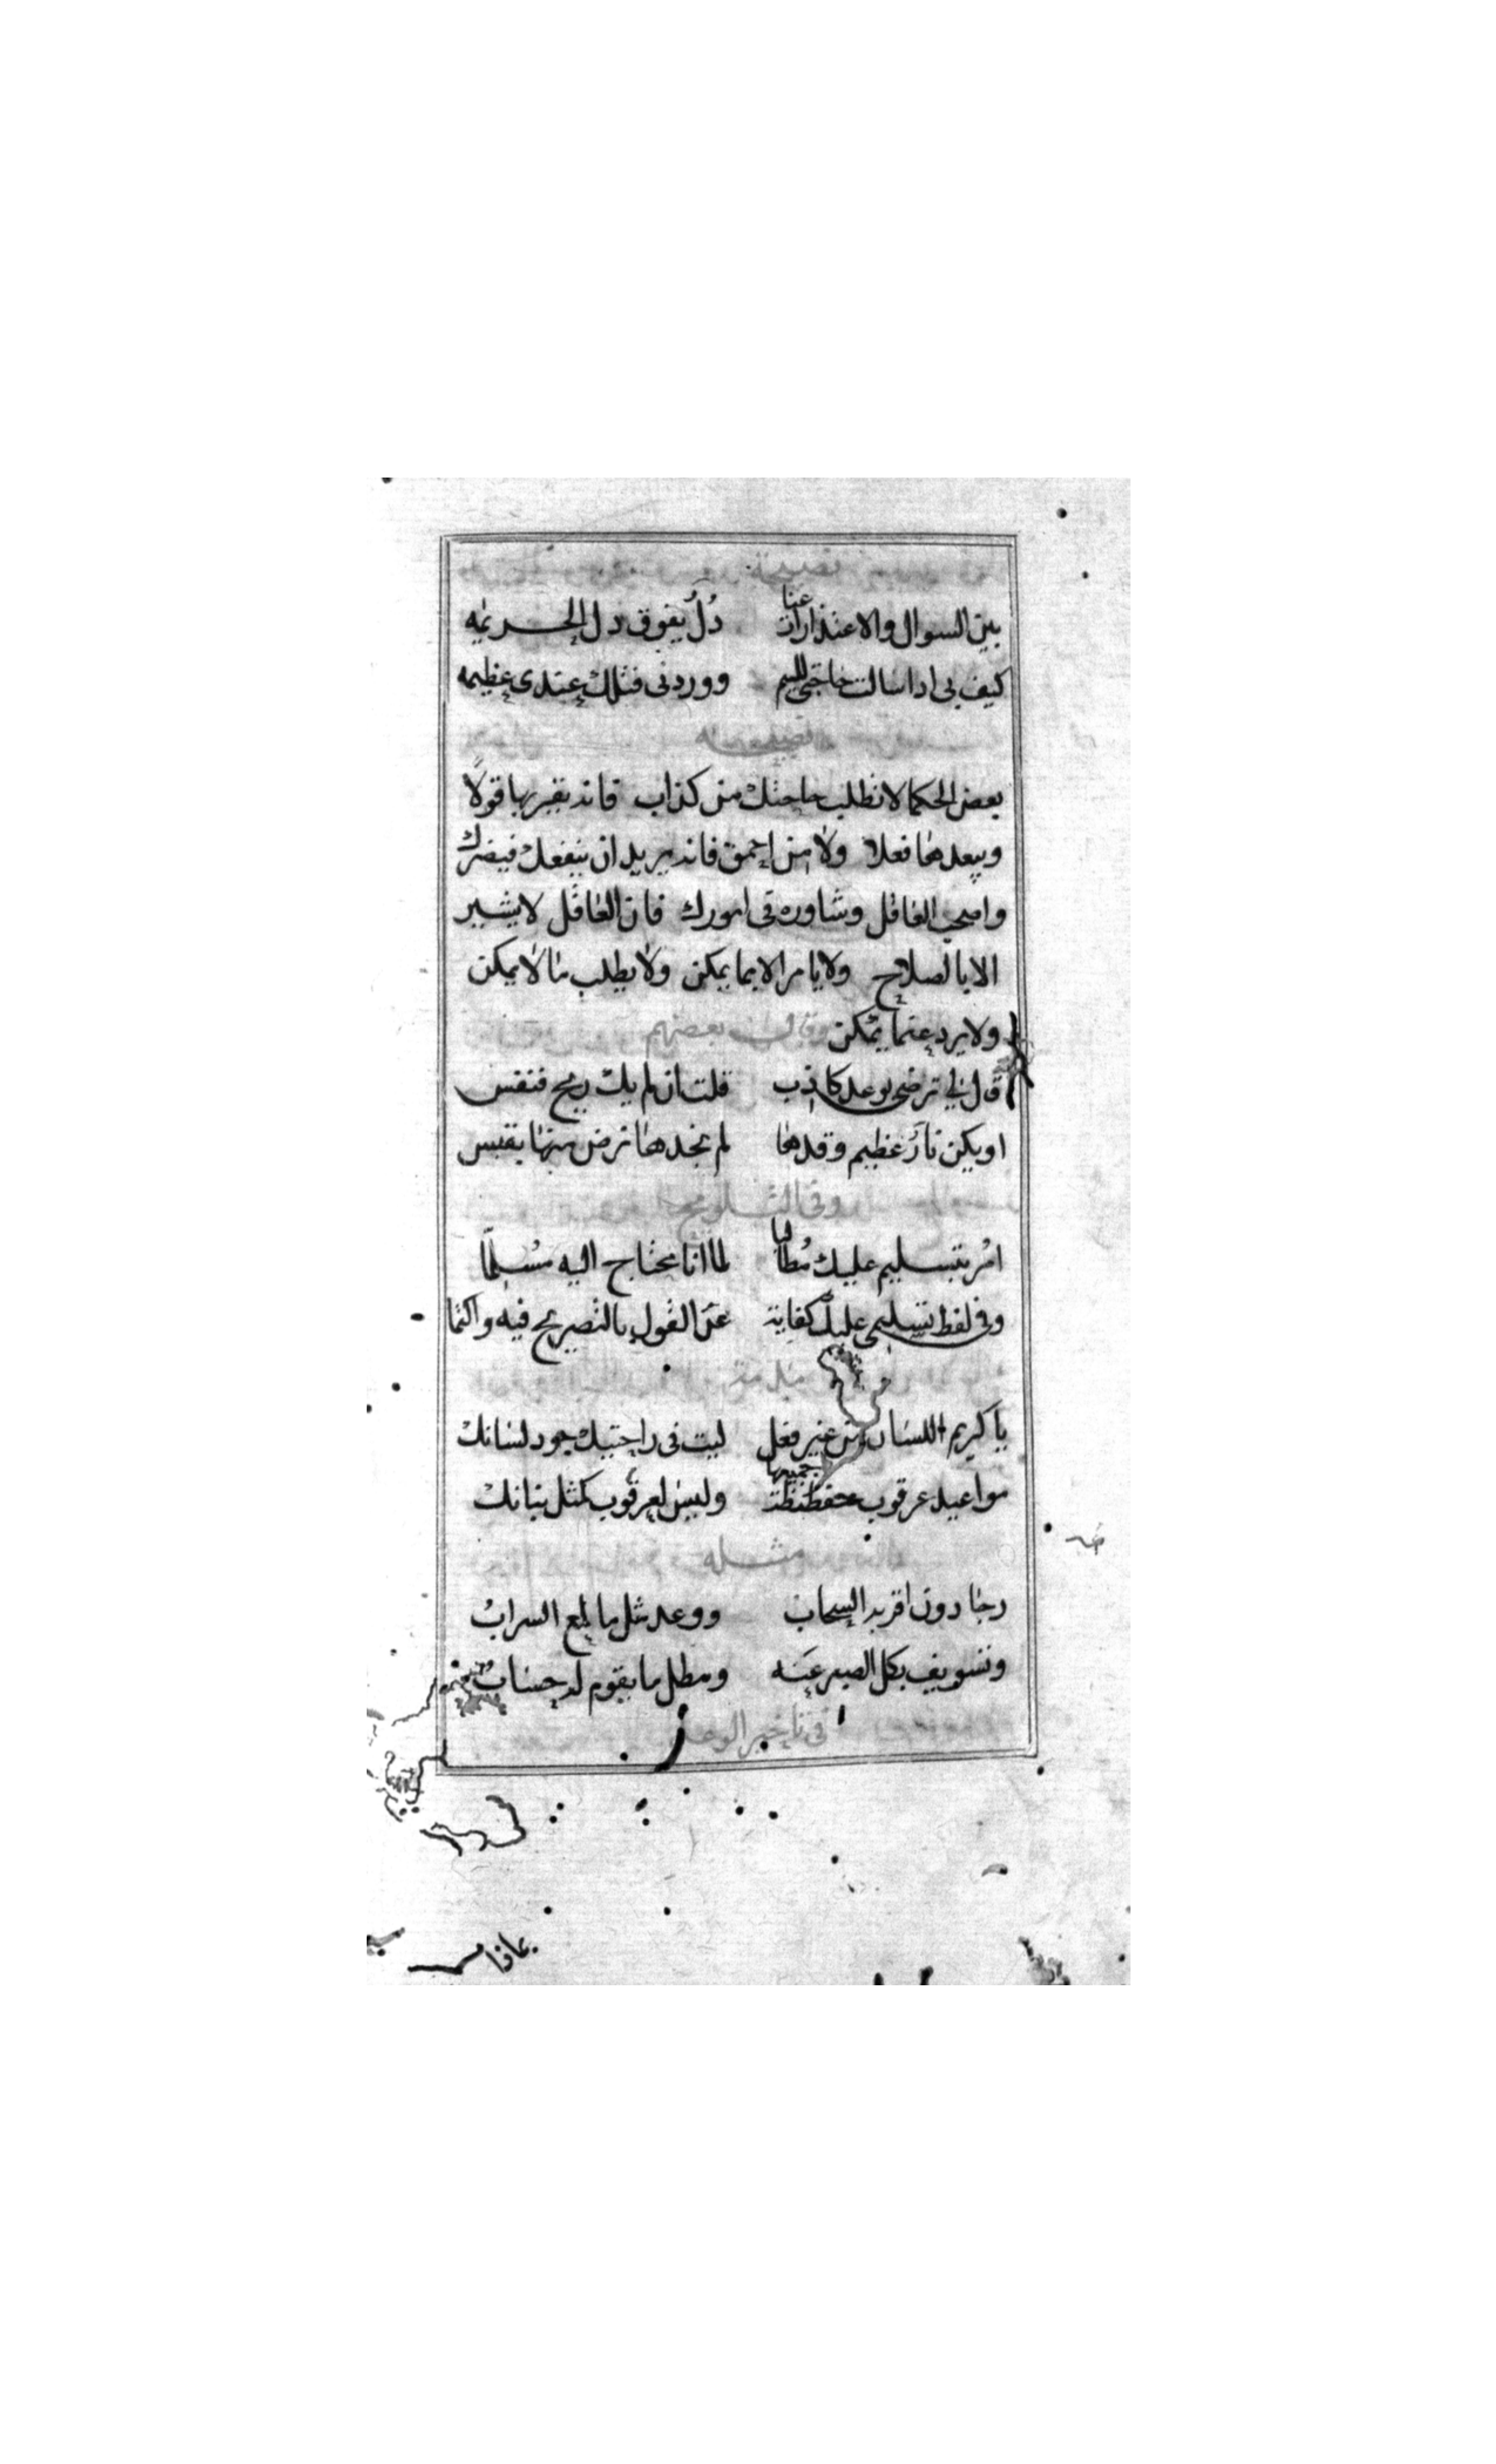 نصيحة
بين السوال والاعتذارات عنا دُلُ يفوق دل الحريمه
كيف بى ادا سالت حاجتى للييم ووردنى فتلك عندى عظيمه
نصيحه
بعض الحكما لا تطلب حاجتك من كذاب فانه يقربها قولاً
ويبعدها فعلا ولا من احمق فانه يريد ان ينفعك فيضرك
واصحب العاقل وشاوره فى امورك فان العاقل لا يشير
الا بالصلاح ولا يامر الا بما يمكن ولا يطلب ما لا يمكن
ولا يرد عنما يمكن وقال بعضهم
قال لى ترضى بوعد كاذب قلت ان لم يك ريح فنفس
او يكن نار عظيم وقدها لم تجدها نرض منها بقبس
وفى التلويح
امر بتسليم عليك مُطالبا لما انا محتاج اليه مُسلمّا
وفى لفظ تسليمى عليك كفاية عن القول بالتصريح فيه واكتما
يا كريم اللسان من غير فعل ليت فى راحتيك جود لسانك
مواعيد عرقوب حفظت جميعها وليس لعرقوب كمثل بنانك
مثله
رجا دون اقربه السحاب ووعد مثل ما لمع السراب
وتسويف بكل الصبر عنه ومطل ما يقوم له حساب
فى تاخير الوعد